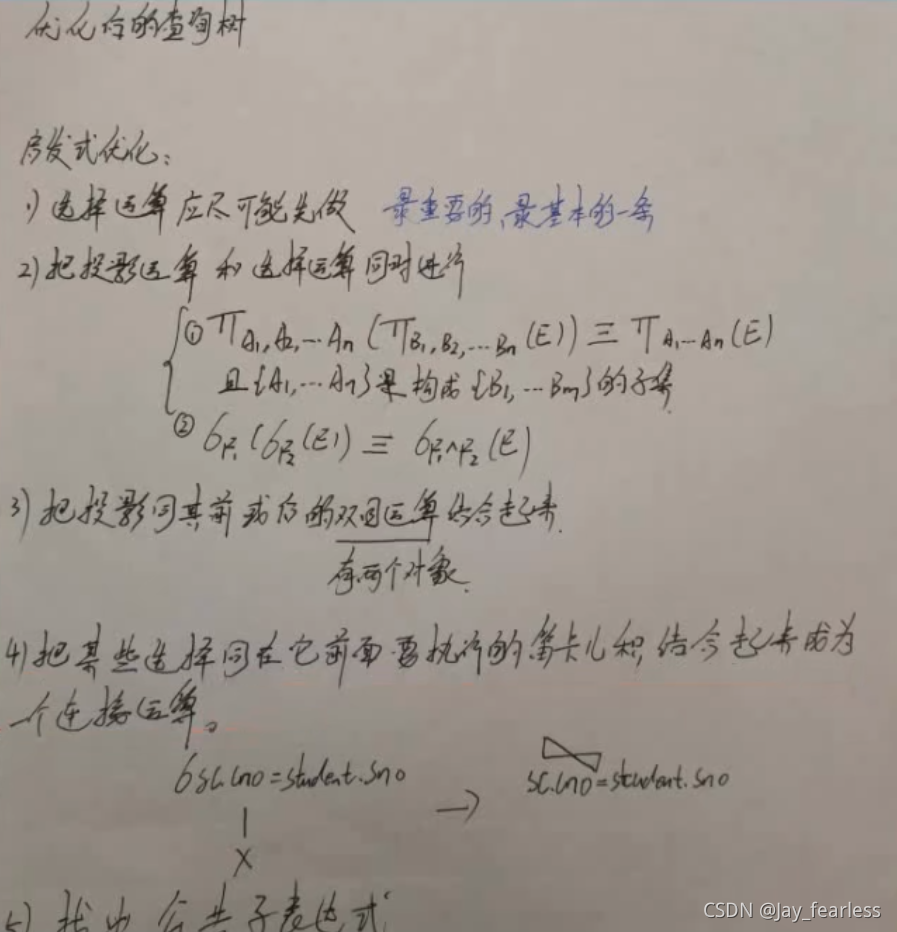 优化后的查询树
启发式优化:
1) 选择运算应尽可能先做 最重要的、最基本的一条
2) 把投影运算和选择运算同时进行
① π A1,A2,…An (π B1,B2,…Bn (E)) ≡ π A1…An (E)
且{A1,…An}是构成{B1,…Bm}的子集
② σF1(σF2(E)) ≡ σF1∧F2(E)
3) 把投影同其前或后的双目运算结合起来.
有两个对象.
4) 把某些选择同在它前面要执行的笛卡儿积结合起来成为
一个连接运算。
σsc.cno=student.sno → ⋈ sc.cno=student.sno
|
×
5) 找出公共子表达式
CSDN @Jay_fearless